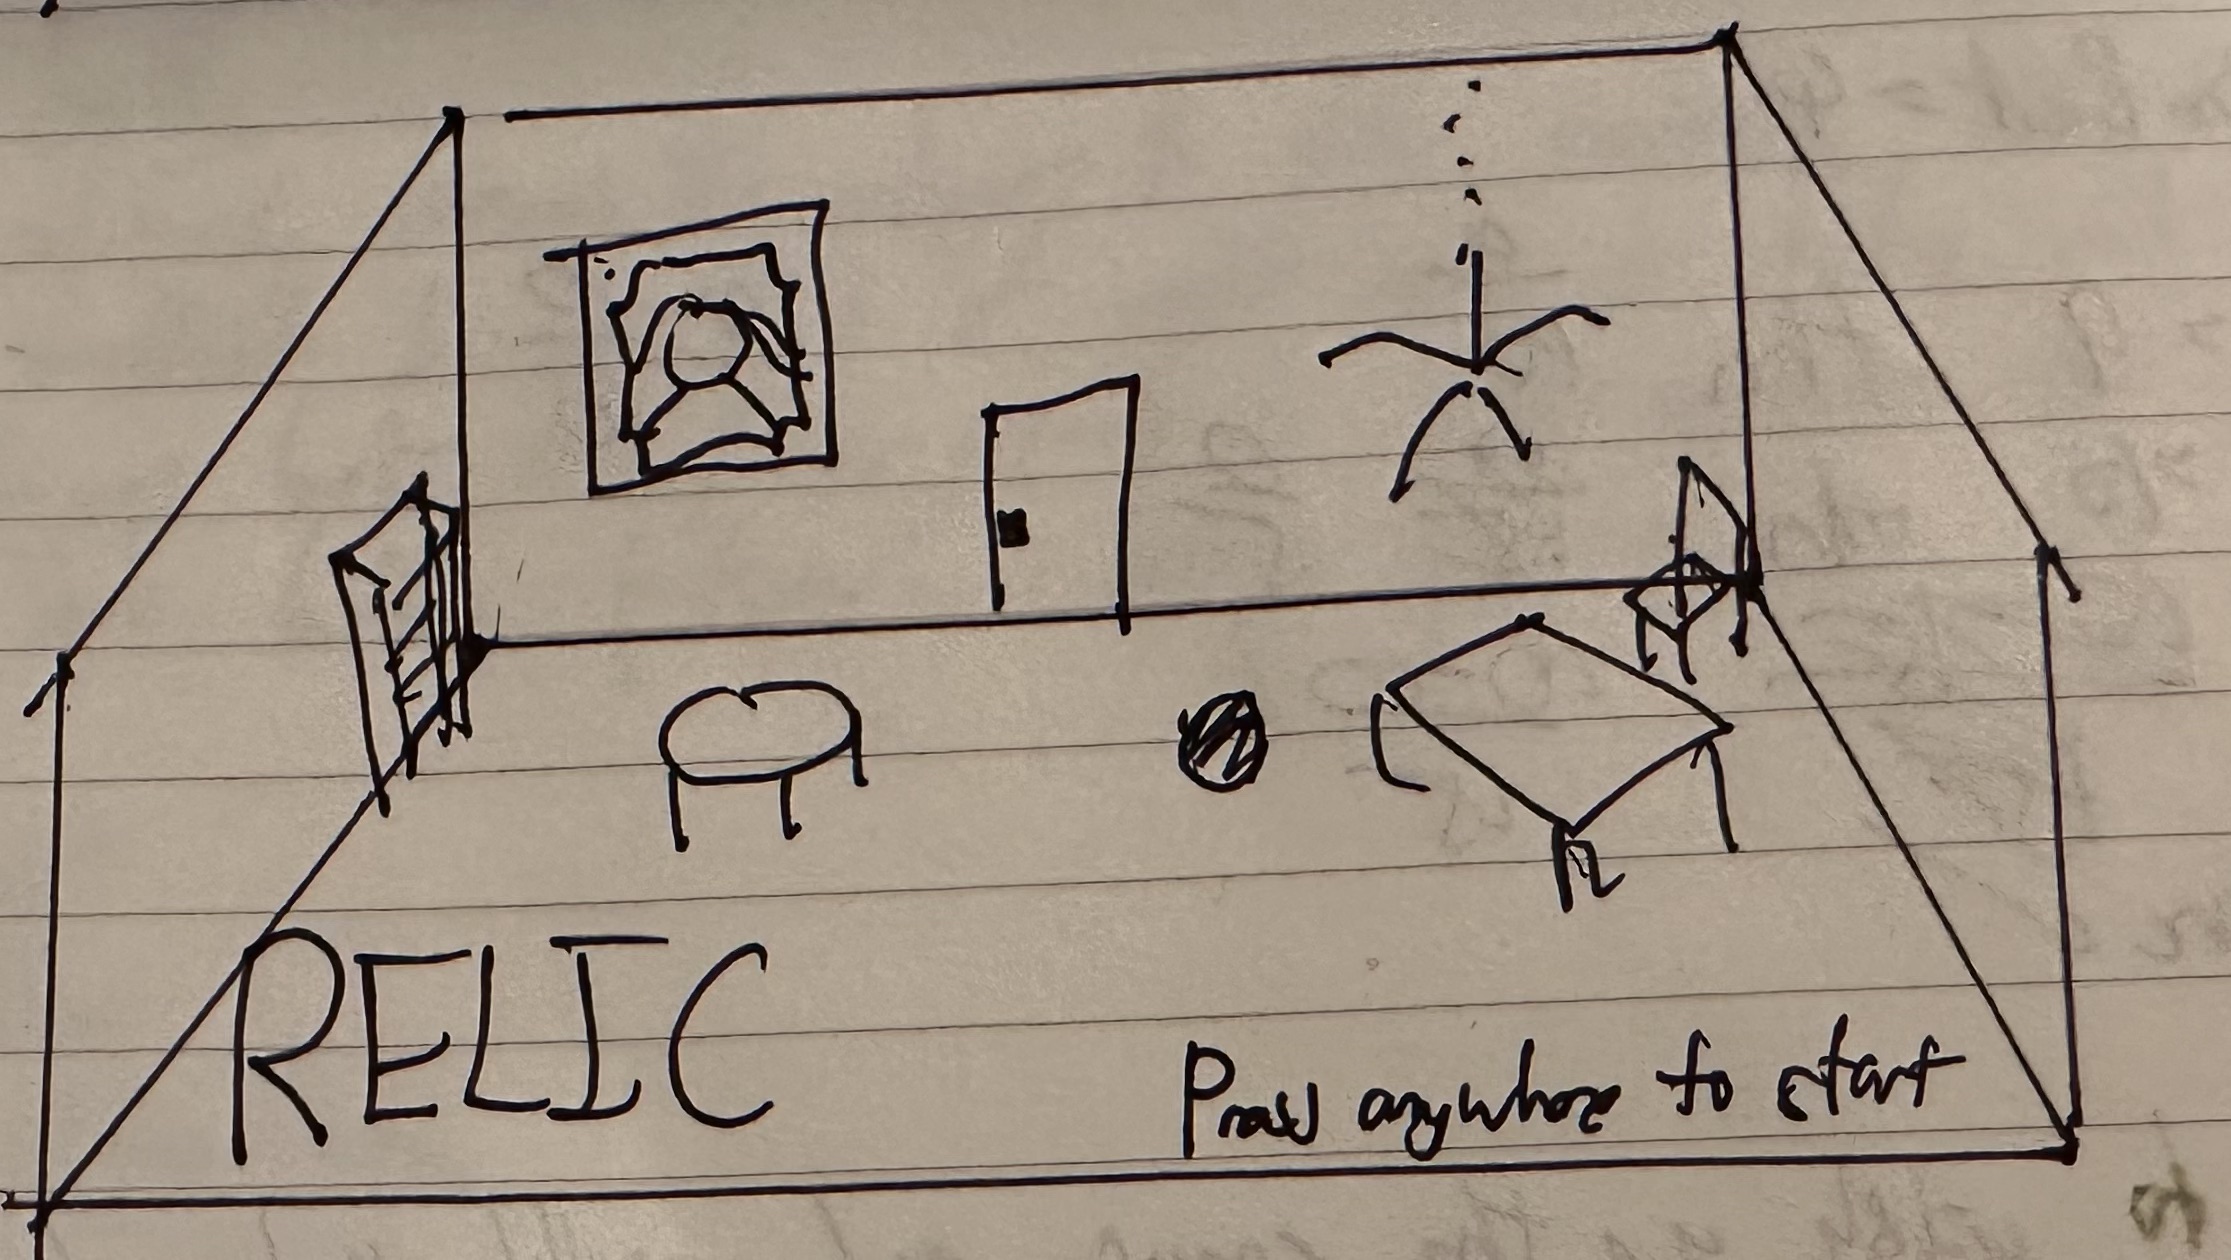 RELIC
Press anywhere to start